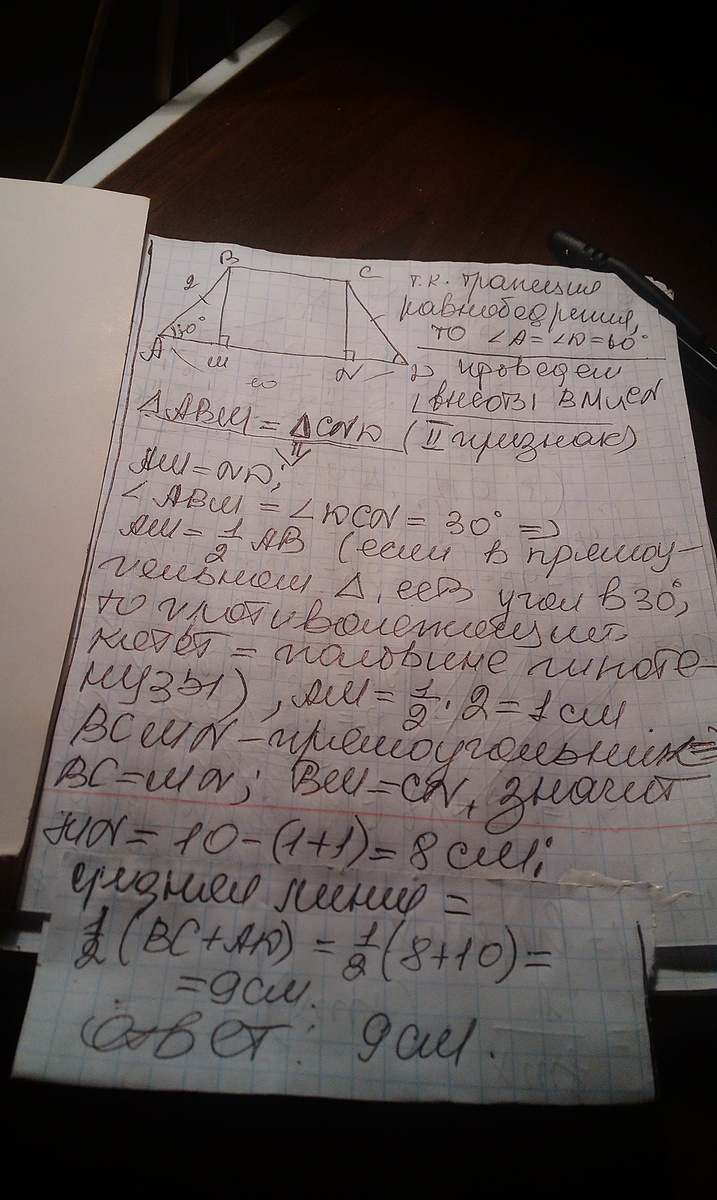 B
C
2
30°
A
M
N
D
10
т.к. трапеция
равнобедренная,
то ∠A=∠D=60°
проведем
высоты BM и CN
△ABM = △CND (II признак)
⇓
AM=ND;
∠ABM = ∠DCN = 30° =>
AM = 1/2 AB (если в прямоу-
гольном △, есть угол в 30°,
то противолежащий
катет = половине гипоте-
нузы), AM = 1/2 · 2 = 1 см
BCMN – прямоугольник=>
BC=MN; BM=CN, значит
MN = 10 – (1+1) = 8 см;
средняя линия =
1/2 (BC+AD) = 1/2 (8+10) =
= 9 см.
Ответ: 9 см.